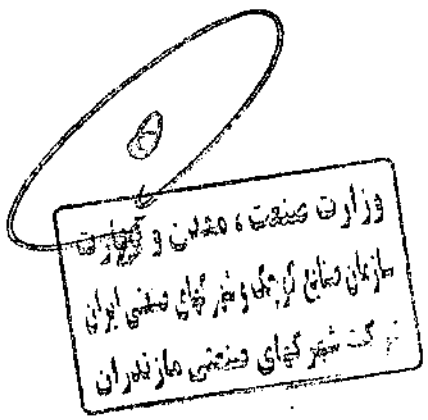 وزارت صنعت ، معدن و تجارت
سازمان صنایع کوچک و شهرکهای صنعتی ایران
شرکت شهرکهای صنعتی مازندران